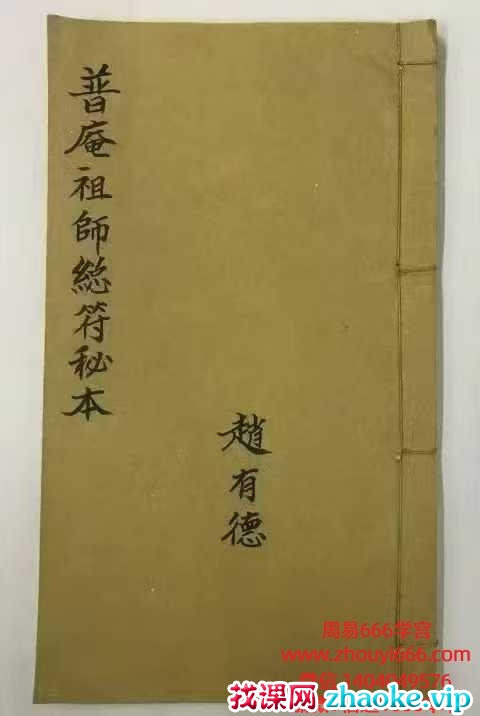 普庵祖師総符秘本
趙有德
周易666学宫
www.zhouyi666.com
找课网 zhaoke.vip